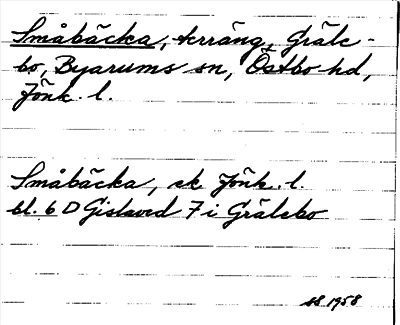 Småbäcka, terräng, Gräle-
bo, Byarums sn, Östbo hd,
Jönk. l.
Småbäcka, ek Jönk. l.
bl. 6 D Gislaved 7 i Grälebo
1958